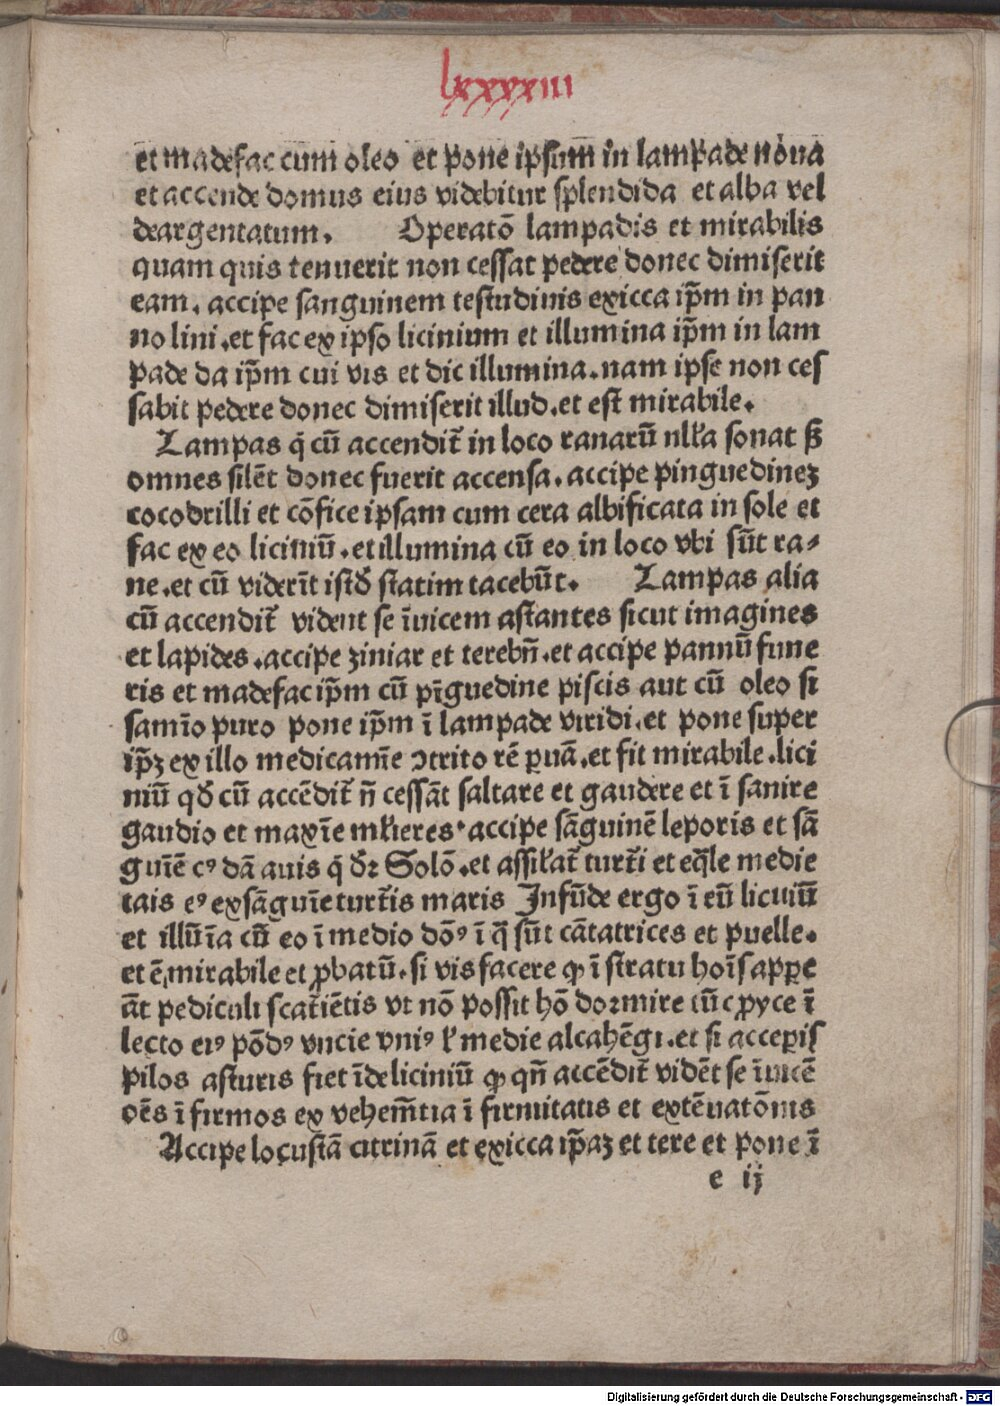 lxxxxiii
et madefac cum oleo et pone ipsum in lampade noua
et accende domus eius videbitur splendida et alba vel
deargentatum. Operatō lampadis et mirabilis
quam quis tenuerit non cessat pedere donec dimiserit
eam. accipe sanguinem testudinis exicca ip̄m in pan
no lini. et fac ex ipso licinium et illumina ip̄m in lam
pade da ip̄m cui vis et dic illumina. nam ipse non ces
sabit pedere donec dimiserit illud. et est mirabile.
Lampas q̄ cū accendit᷑ in loco ranarū nll'a sonat ß
omnes silēt donec fuerit accensa. accipe pinguedinez
cocodrilli et cōfice ipsam cum cera albificata in sole et
fac ex eo liciniū. et illumina cū eo in loco vbi sūt ra-
ne. et cū viderīt istđ statim tacebūt. Lampas alia
cū accendit᷑ vident se īuicem astantes sicut imagines
et lapides. accipe ziniar et terebn̄. et accipe pannū fune
ris et madefac ip̄m cū pīguedine piscis aut cū oleo si
samīo puro pone ip̄m ī lampade viridi. et pone super
ip̄z ex illo medicamīe ↄtrito rē ꝑuā. et fit mirabile. lici
niū qđ cū accēdit᷑ n̄ cessāt saltare et gaudere et ī sanire
gaudio et maxīe ml'ieres. accipe sāguinē leporis et sā
guīē cꝰ dā auis q̄ đr Solō. et assil'at᷑ turt᷑i et eq̄le medie
tais eꝰ ex sāguīe turt᷑is maris Infūde ergo ī eū liciniū
et illūīa cū eo ī medio dōꝰ ī q̄ sūt cātatrices et puelle.
et ē mirabile et ꝓbatū. si vis facere ꝙ ī stratu hoīs apꝑe
āt pediculi scat᷑iētis vt nō possit hō dormire tūc ꝓyce ī
lecto eiꝰ pōdꝰ vncie vniꝰ l' medie alcahēgi. et si acceꝑis
pilos asturis fiet īde liciniū ꝙ qn̄ accēdit᷑ vidēt se īuicē
oēs ī firmos ex vehem̄tia ī firmitatis et extēuatōnis
Accipe locustā citrinā et exicca ip̄az et tere et pone ī
e ij
Digitalisierung gefördert durch die Deutsche Forschungsgemeinschaft - DFG